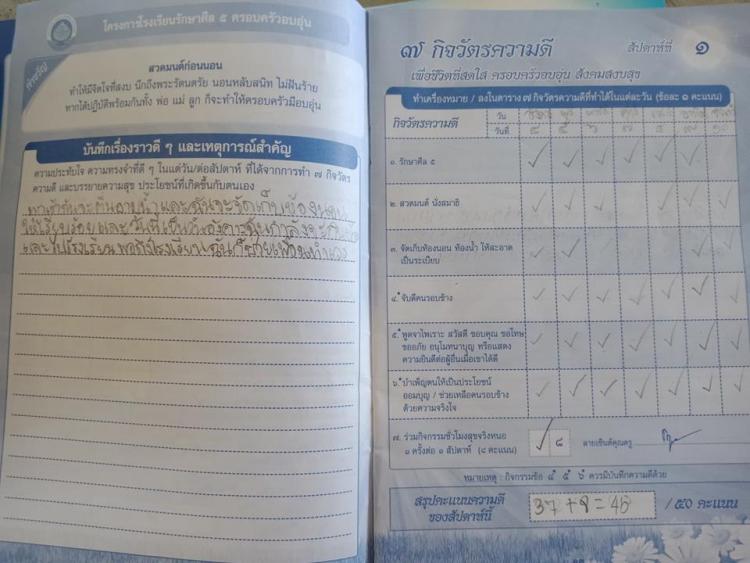 โครงการโรงเรียนรักษาศีล ๕ ครอบครัวอบอุ่น
คำขวัญ
สวดมนต์ก่อนนอน
ทำให้มีจิตใจที่สงบ นึกถึงพระรัตนตรัย นอนหลับสนิท ไม่ฝันร้าย
หากได้ปฏิบัติพร้อมกันทั้ง พ่อ แม่ ลูก ก็จะทำให้ครอบครัวมีอบอุ่น
บันทึกเรื่องราวดี ๆ และเหตุการณ์สำคัญ
ความประทับใจ ความทรงจำที่ดี ๆ ในแต่วัน/ต่อสัปดาห์ ที่ได้จากการทำ ๗ กิจวัตร
ความดี และบรรยายความสุข ประโยชน์ที่เกิดขึ้นกับตนเอง
และฉันจะจัดเก็บห้องนอน
ให้เรียบร้อย และวันนี้เป็นวันอังคารฉันกำลังจะ
และไปโรงเรียน พอถึงโรงเรียน ฉันก็ช่วยเพื่อนทำ
๗ กิจวัตรความดี
สัปดาห์ที่ ๑
เพื่อชีวิตที่สดใส ครอบครัวอบอุ่น สังคมสงบสุข
ทำเครื่องหมาย / ลงในตาราง ๗ กิจวัตรความดีที่ทำได้ในแต่ละวัน (ข้อละ ๑ คะแนน)
กิจวัตรความดี
วัน
วันที่ ๔ ๕ ๖ ๗ ๘ ๙ ๑๐
๑. รักษาศีล ๕
๒. สวดมนต์ นั่งสมาธิ
๓. จัดเก็บห้องนอน ห้องน้ำ ให้สะอาด
เป็นระเบียบ
๔. จับดีคนรอบข้าง
๕. พูดจาไพเราะ สวัสดี ขอบคุณ ขอโทษ
ขออภัย อนุโมทนาบุญ หรือแสดง
ความยินดีต่อผู้อื่นเมื่อเขาได้ดี
๖. บำเพ็ญตนให้เป็นประโยชน์
ออมบุญ / ช่วยเหลือคนรอบข้าง
ด้วยความจริงใจ
๗. ร่วมกิจกรรมชั่วโมงสุขจริงหนอ
๑ ครั้งต่อ ๑ สัปดาห์ (๘ คะแนน)
๘
ลายเซ็นต์คุณครู
หมายเหตุ : กิจกรรมข้อ ๔ ๕ ๖ ควรมีบันทึกความดีด้วย
สรุปคะแนนความดี
ของสัปดาห์นี้
37 + 8 = 45
/ ๕๐ คะแนน